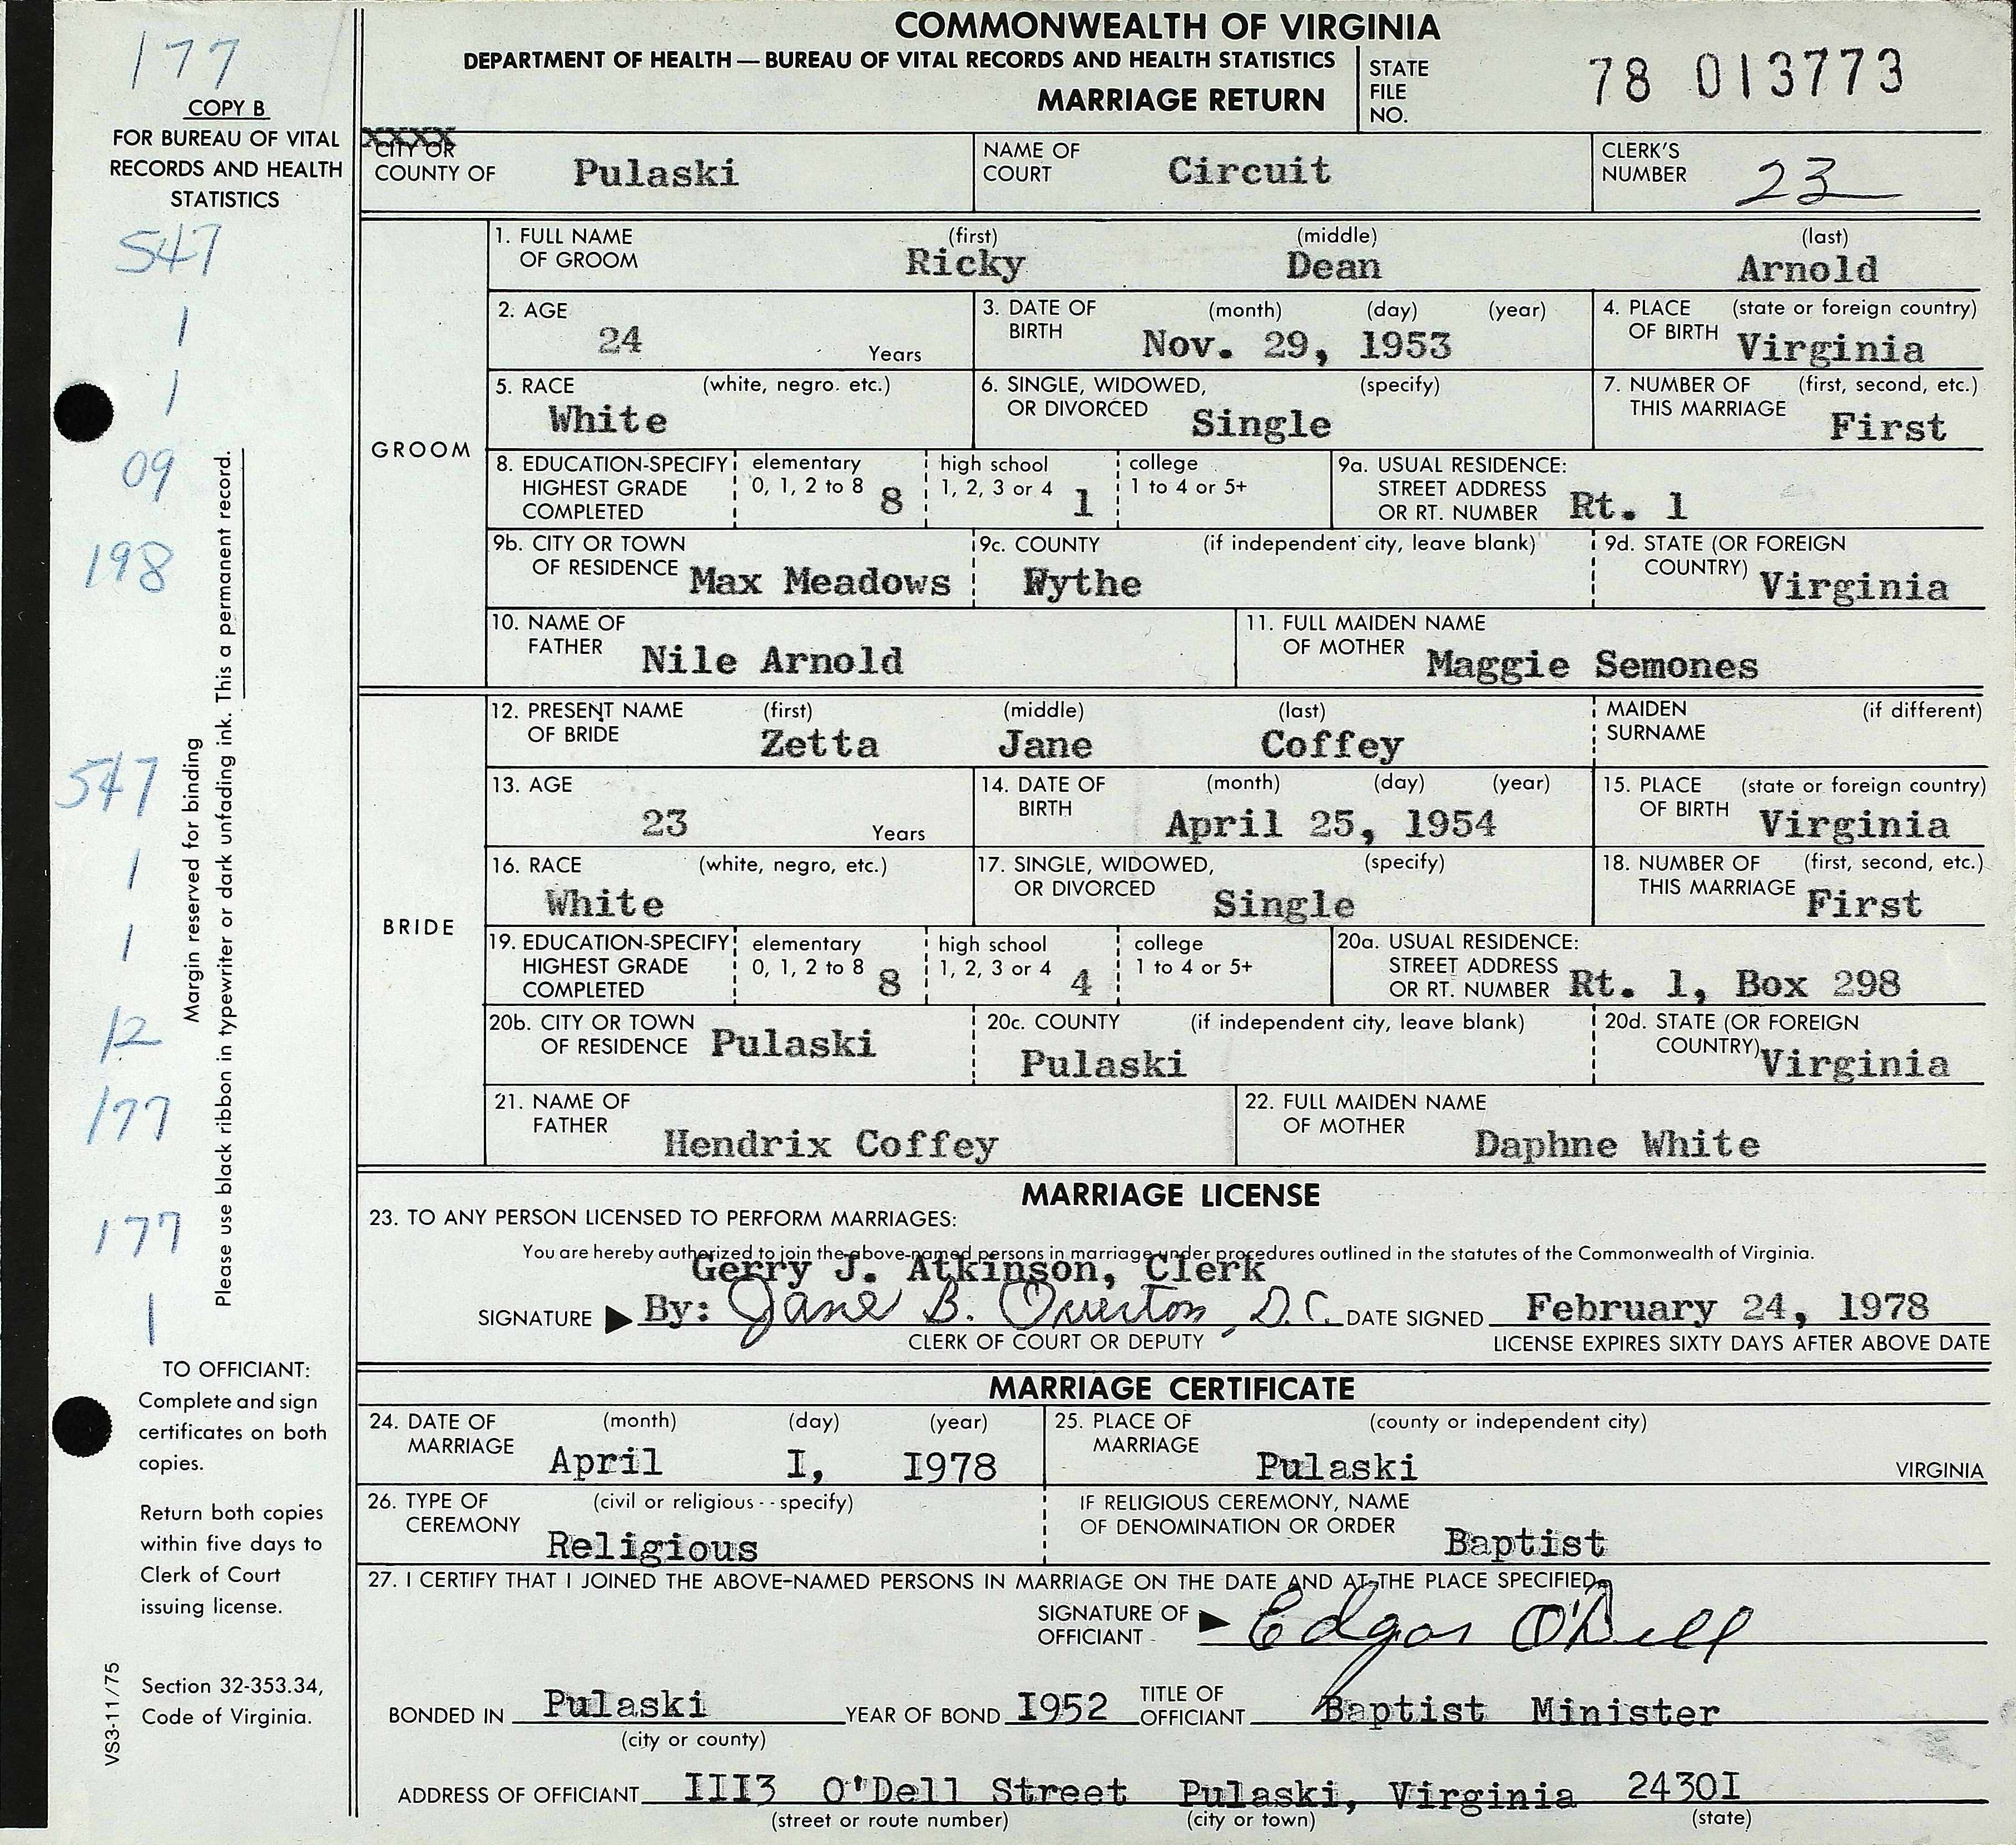 COMMONWEALTH OF VIRGINIA
DEPARTMENT OF HEALTH — BUREAU OF VITAL RECORDS AND HEALTH STATISTICS
MARRIAGE RETURN
STATE FILE NO. 78 013773
177
COPY B
FOR BUREAU OF VITAL
RECORDS AND HEALTH
STATISTICS
547
1
1
09
198
547
1
1
12
177
177
1
Margin reserved for binding
Please use black ribbon in typewriter or dark unfading ink. This a permanent record.
TO OFFICIANT:
Complete and sign
certificates on both
copies.
Return both copies
within five days to
Clerk of Court
issuing license.
Section 32-353.34,
Code of Virginia.
VS3-11/75
XXXX
CITY OR
COUNTY OF Pulaski
NAME OF COURT Circuit
CLERK'S NUMBER 23
GROOM
1. FULL NAME OF GROOM (first) Ricky (middle) Dean (last) Arnold
2. AGE 24 Years
3. DATE OF BIRTH (month) (day) (year) Nov. 29, 1953
4. PLACE OF BIRTH (state or foreign country) Virginia
5. RACE (white, negro. etc.) White
6. SINGLE, WIDOWED, OR DIVORCED (specify) Single
7. NUMBER OF THIS MARRIAGE (first, second, etc.) First
8. EDUCATION-SPECIFY HIGHEST GRADE COMPLETED elementary 0, 1, 2 to 8 8 high school 1, 2, 3 or 4 1 college 1 to 4 or 5+
9a. USUAL RESIDENCE: STREET ADDRESS OR RT. NUMBER Rt. 1
9b. CITY OR TOWN OF RESIDENCE Max Meadows
9c. COUNTY (if independent city, leave blank) Wythe
9d. STATE (OR FOREIGN COUNTRY) Virginia
10. NAME OF FATHER Nile Arnold
11. FULL MAIDEN NAME OF MOTHER Maggie Semones
BRIDE
12. PRESENT NAME OF BRIDE (first) Zetta (middle) Jane (last) Coffey
MAIDEN SURNAME (if different)
13. AGE 23 Years
14. DATE OF BIRTH (month) (day) (year) April 25, 1954
15. PLACE OF BIRTH (state or foreign country) Virginia
16. RACE (white, negro, etc.) White
17. SINGLE, WIDOWED, OR DIVORCED (specify) Single
18. NUMBER OF THIS MARRIAGE (first, second, etc.) First
19. EDUCATION-SPECIFY HIGHEST GRADE COMPLETED elementary 0, 1, 2 to 8 8 high school 1, 2, 3 or 4 4 college 1 to 4 or 5+
20a. USUAL RESIDENCE: STREET ADDRESS OR RT. NUMBER Rt. 1, Box 298
20b. CITY OR TOWN OF RESIDENCE Pulaski
20c. COUNTY (if independent city, leave blank) Pulaski
20d. STATE (OR FOREIGN COUNTRY) Virginia
21. NAME OF FATHER Hendrix Coffey
22. FULL MAIDEN NAME OF MOTHER Daphne White
MARRIAGE LICENSE
23. TO ANY PERSON LICENSED TO PERFORM MARRIAGES:
You are hereby authorized to join the above-named persons in marriage under procedures outlined in the statutes of the Commonwealth of Virginia.
Gerry J. Atkinson, Clerk
SIGNATURE By: Jane B. Overton, D.C. DATE SIGNED February 24, 1978
CLERK OF COURT OR DEPUTY LICENSE EXPIRES SIXTY DAYS AFTER ABOVE DATE
MARRIAGE CERTIFICATE
24. DATE OF MARRIAGE (month) (day) (year) April I, I978
25. PLACE OF MARRIAGE (county or independent city) Pulaski VIRGINIA
26. TYPE OF CEREMONY (civil or religious - - specify) Religious
IF RELIGIOUS CEREMONY, NAME OF DENOMINATION OR ORDER Baptist
27. I CERTIFY THAT I JOINED THE ABOVE-NAMED PERSONS IN MARRIAGE ON THE DATE AND AT THE PLACE SPECIFIED.
SIGNATURE OF OFFICIANT Edgar O'Dell
BONDED IN Pulaski YEAR OF BOND I952 TITLE OF OFFICIANT Baptist Minister
(city or county)
ADDRESS OF OFFICIANT III3 O'Dell Street Pulaski, Virginia 2430I
(street or route number) (city or town) (state)